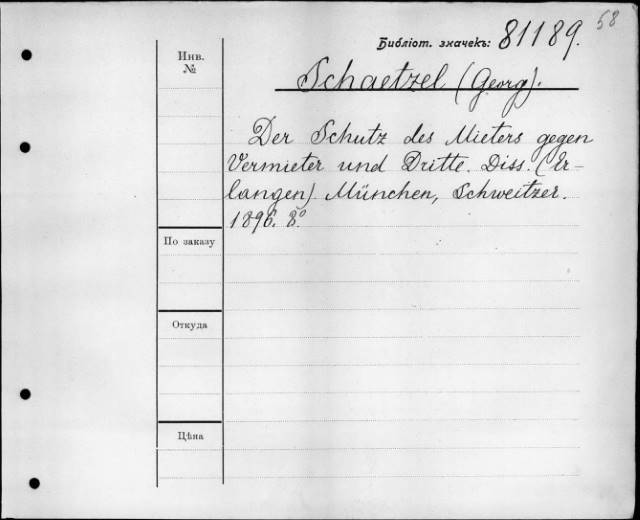 58
Библіот. значекъ: 81189.
Инв.
№
Schaetzel (Georg).
Der Schutz des Mieters gegen
Vermieter und Dritte. Diss. (Er-
langen). München, Schweitzer.
1896. 8º
По заказу
Откуда
Цѣна